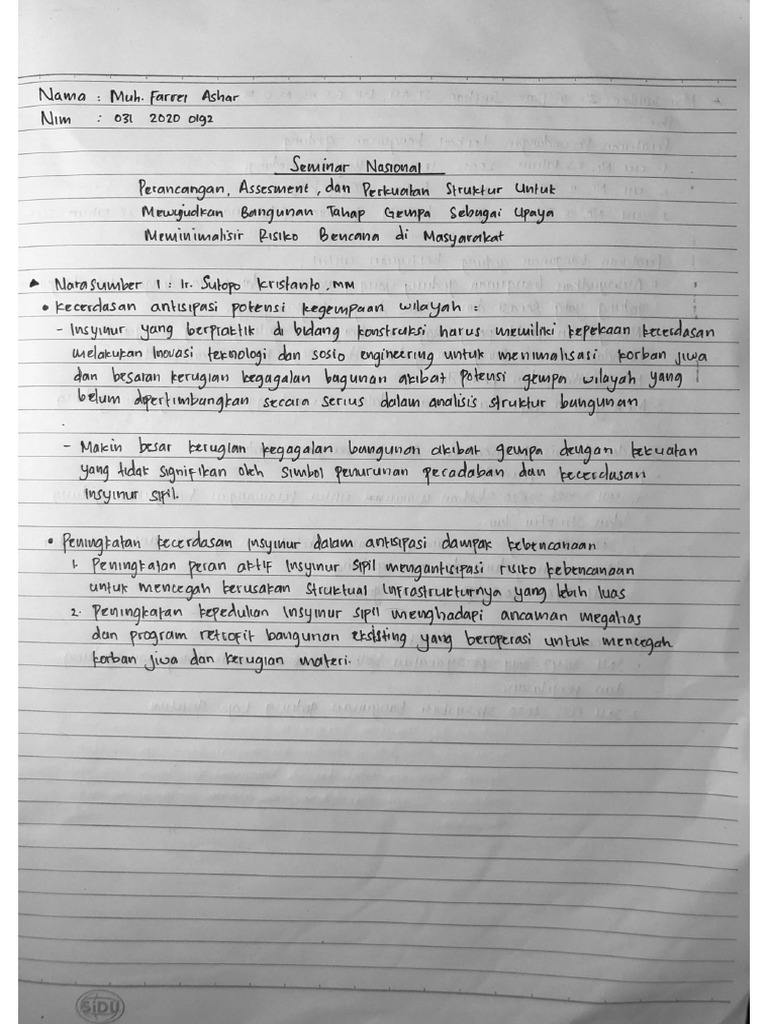 Nama : Muh. Farrel Ashar
Nim : 031 2020 0192
Seminar Nasional
Perancangan, Assesment, dan Perkuatan Struktur Untuk
Mewujudkan Bangunan Tahap Gempa Sebagai Upaya
Meminimalisir Risiko Bencana di Masyarakat
Narasumber 1 : Ir. Sutopo Kristanto, MM
• Kecerdasan antisipasi potensi kegempaan wilayah :
- Insyinur yang berpraktik di bidang konstruksi harus memiliki kepekaan kecerdasan
melakukan inovasi teknologi dan sosio engineering untuk menimalisasi korban jiwa
dan besaran kerugian kegagalan bagunan akibat potensi gempa wilayah yang
belum dipertimbangkan secara serius dalam analisis struktur bangunan
- Makin besar kerugian kegagalan bangunan akibat gempa dengan kekuatan
yang tidak signifikan oleh simbol penurunan peradaban dan kecerdasan
insyinur sipil.
• Peningkatan kecerdasan insyinur dalam antisipasi dampak kebencanaan
1. Peningkatan peran aktif insyinur sipil mengantisipasi risiko kebencanaan
untuk mencegah kerusakan struktual infrastrukturnya yang lebih luas
2. Peningkatan kepedulian insyinur sipil menghadapi ancaman megahas
dan program retrofit bangunan eksisting yang beroperasi untuk mencegah
korban jiwa dan kerugian materi.
SiDU